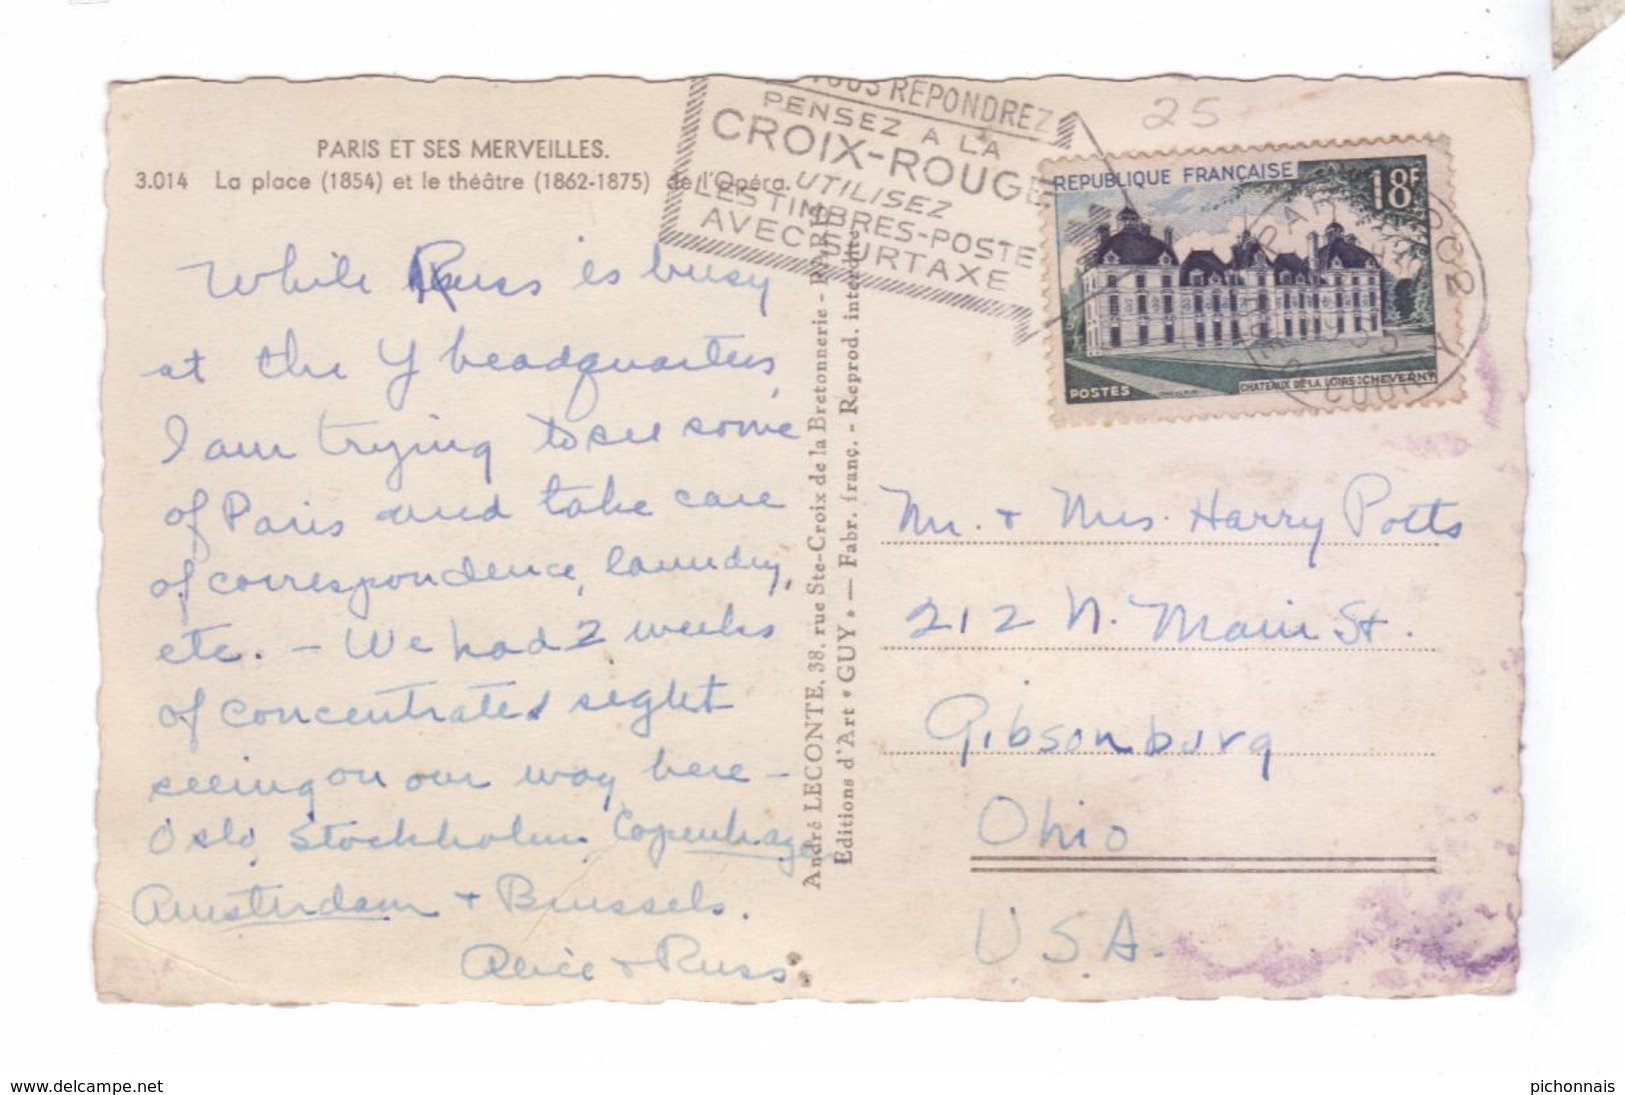 PARIS ET SES MERVEILLES.
3.014 La place (1854) et le théâtre (1862-1875) de l'Opéra.
While Russ is busy
at the Y headquarters,
I am trying to see some
of Paris and take care
of correspondence, laundry,
etc. - We had 2 weeks
of concentrated sight
seeing on our way here -
Oslo, Stockholm, Copenhagen
Amsterdam + Brussels.
Alice + Russ
André LECONTE, 38, rue Ste-Croix de la Bretonnerie - PARIS
Editions d'Art "GUY" — Fabr. franç. - Reprod. interdite
VOUS REPONDREZ
PENSEZ A LA
CROIX-ROUGE
UTILISEZ
LES TIMBRES-POSTE
AVEC SURTAXE
25
REPUBLIQUE FRANÇAISE
18F
POSTES
CHATEAUX DE LA LOIRE: CHEVERNY
Mr. + Mrs. Harry Potts
212 N. Main St.
Gibsonburg
Ohio
U.S.A.
www.delcampe.net
pichonnais